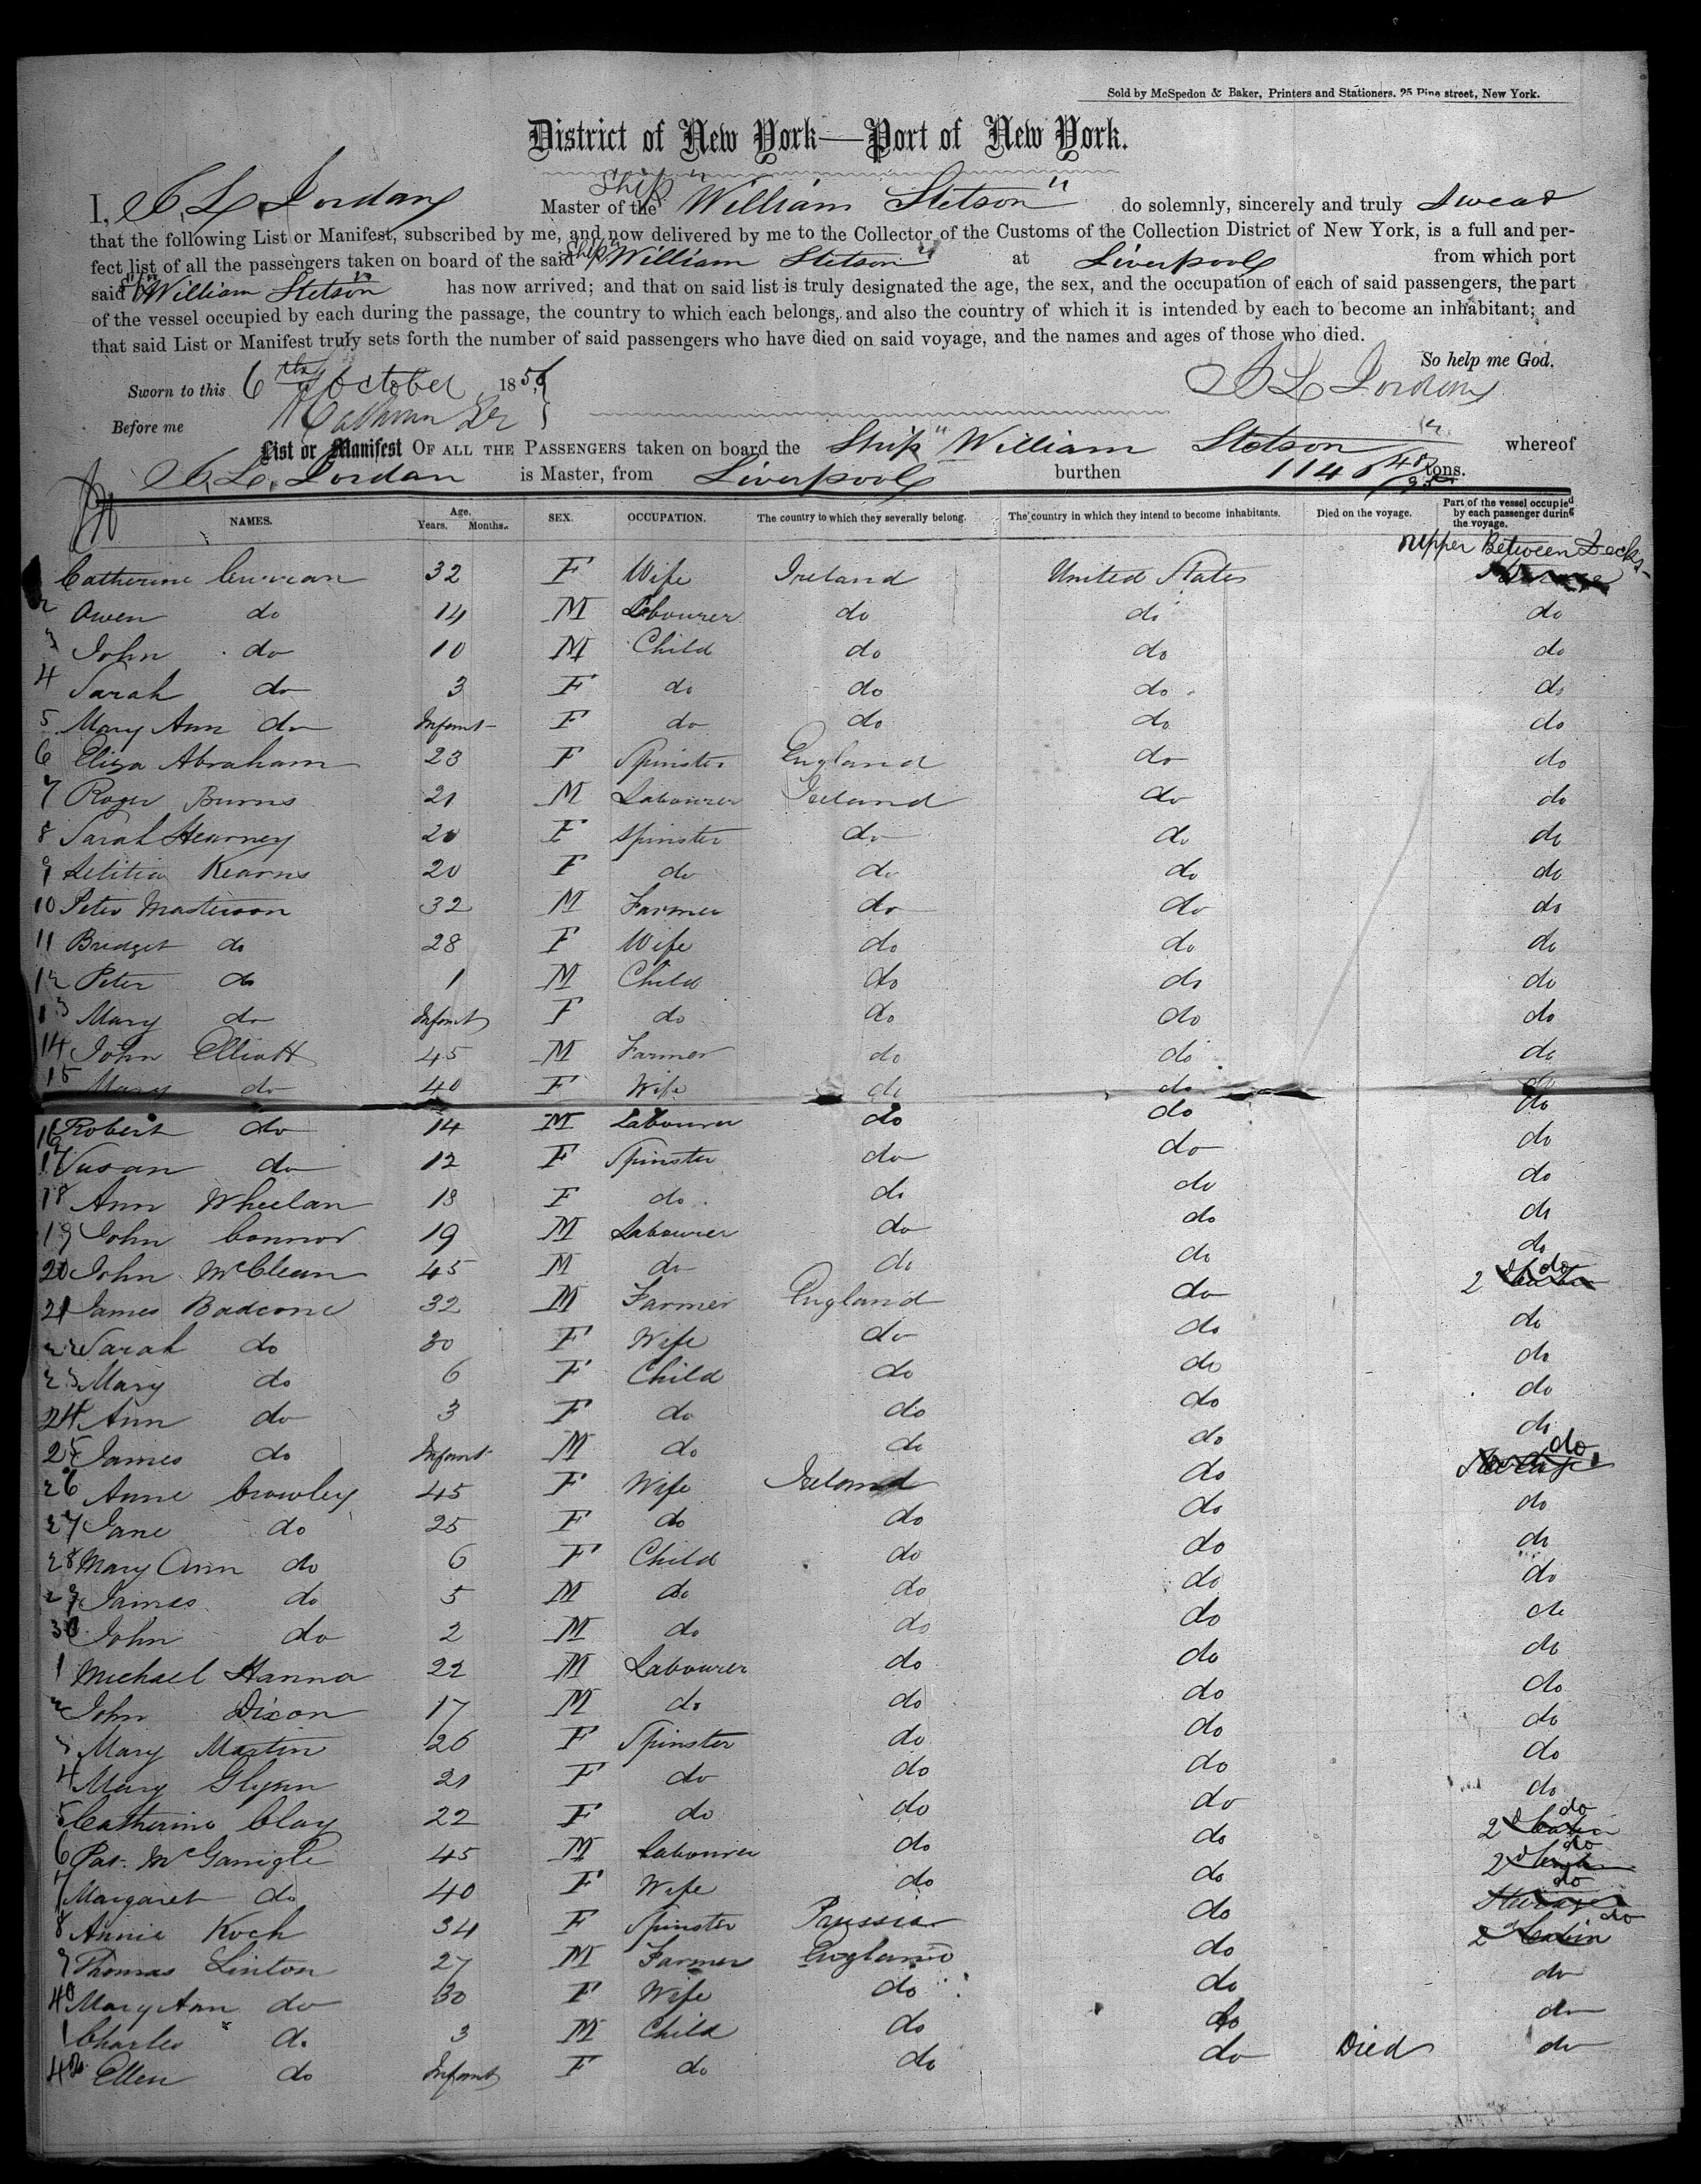 Sold by McSpedon & Baker, Printers and Stationers. 25 Pine street, New York.
District of New York—Port of New York.
I, Jordan Master of the Ship "William Stetson" do solemnly, sincerely and truly swear
that the following List or Manifest, subscribed by me, and now delivered by me to the Collector of the Customs of the Collection District of New York, is a full and per-
fect list of all the passengers taken on board of the said Ship "William Stetson" at Liverpool from which port
said Ship "William Stetson" has now arrived; and that on said list is truly designated the age, the sex, and the occupation of each of said passengers, the part
of the vessel occupied by each during the passage, the country to which each belongs, and also the country of which it is intended by each to become an inhabitant; and
that said List or Manifest truly sets forth the number of said passengers who have died on said voyage, and the names and ages of those who died.
So help me God.
Sworn to this 6th October 185 Jordan
Before me
List or Manifest OF ALL THE PASSENGERS taken on board the Ship "William Stetson" whereof
Jordan is Master, from Liverpool burthen 1146 48/95 tons.
NAMES. Age. Years. Months. SEX. OCCUPATION. The country to which they severally belong. The country in which they intend to become inhabitants. Died on the voyage. Part of the vessel occupied by each passenger during the voyage.
Upper Between Decks
Catherine Curran 32 F Wife Ireland United States
2 Owen do 14 M Labourer do do do
3 John do 10 M Child do do do
4 Sarah do 3 F do do do do
5 Mary Ann do Infant F do do do do
6 Eliza Abraham 23 F Spinster England do do
7 Roger Burns 21 M Labourer Ireland do do
8 Sarah Hearney 20 F Spinster do do do
9 Letitia Kearns 20 F do do do do
10 Peter Masterson 32 M Farmer do do do
11 Bridget do 28 F Wife do do do
12 Peter do 1 M Child do do do
13 Mary do Infant F do do do do
14 John Elliott 45 M Farmer do do do
15 Mary do 40 F Wife do do do
16 Robert do 14 M Labourer do do do
17 Susan do 12 F Spinster do do do
18 Ann Wheelan 18 F do do do do
19 John Connor 19 M Labourer do do do
20 John McClean 45 M do do do do
21 James Badcone 32 M Farmer England do 2 do
22 Sarah do 30 F Wife do do do
23 Mary do 6 F Child do do do
24 Ann do 3 F do do do do
25 James do Infant M do do do do
26 Anne Crowley 45 F Wife Ireland do Steerage do
27 Jane do 25 F do do do do
28 Mary Ann do 6 F Child do do do
29 James do 5 M do do do do
30 John do 2 M do do do do
1 Michael Hanna 22 M Labourer do do do
2 John Dixon 17 M do do do do
3 Mary Martin 26 F Spinster do do do
4 Mary Glynn 21 F do do do do
5 Catherine Clay 22 F do do do do
6 Pat. McGanigle 45 M Labourer do do 2d Cabin do
7 Margaret do 40 F Wife do do 2d Cabin do
8 Annie Koch 34 F Spinster Prussia do Steerage do
9 Thomas Linton 27 M Farmer England do 2d Cabin do
40 Mary Ann do 30 F Wife do do do
1 Charles do 3 M Child do do do
42 Ellen do Infant F do do do Died do